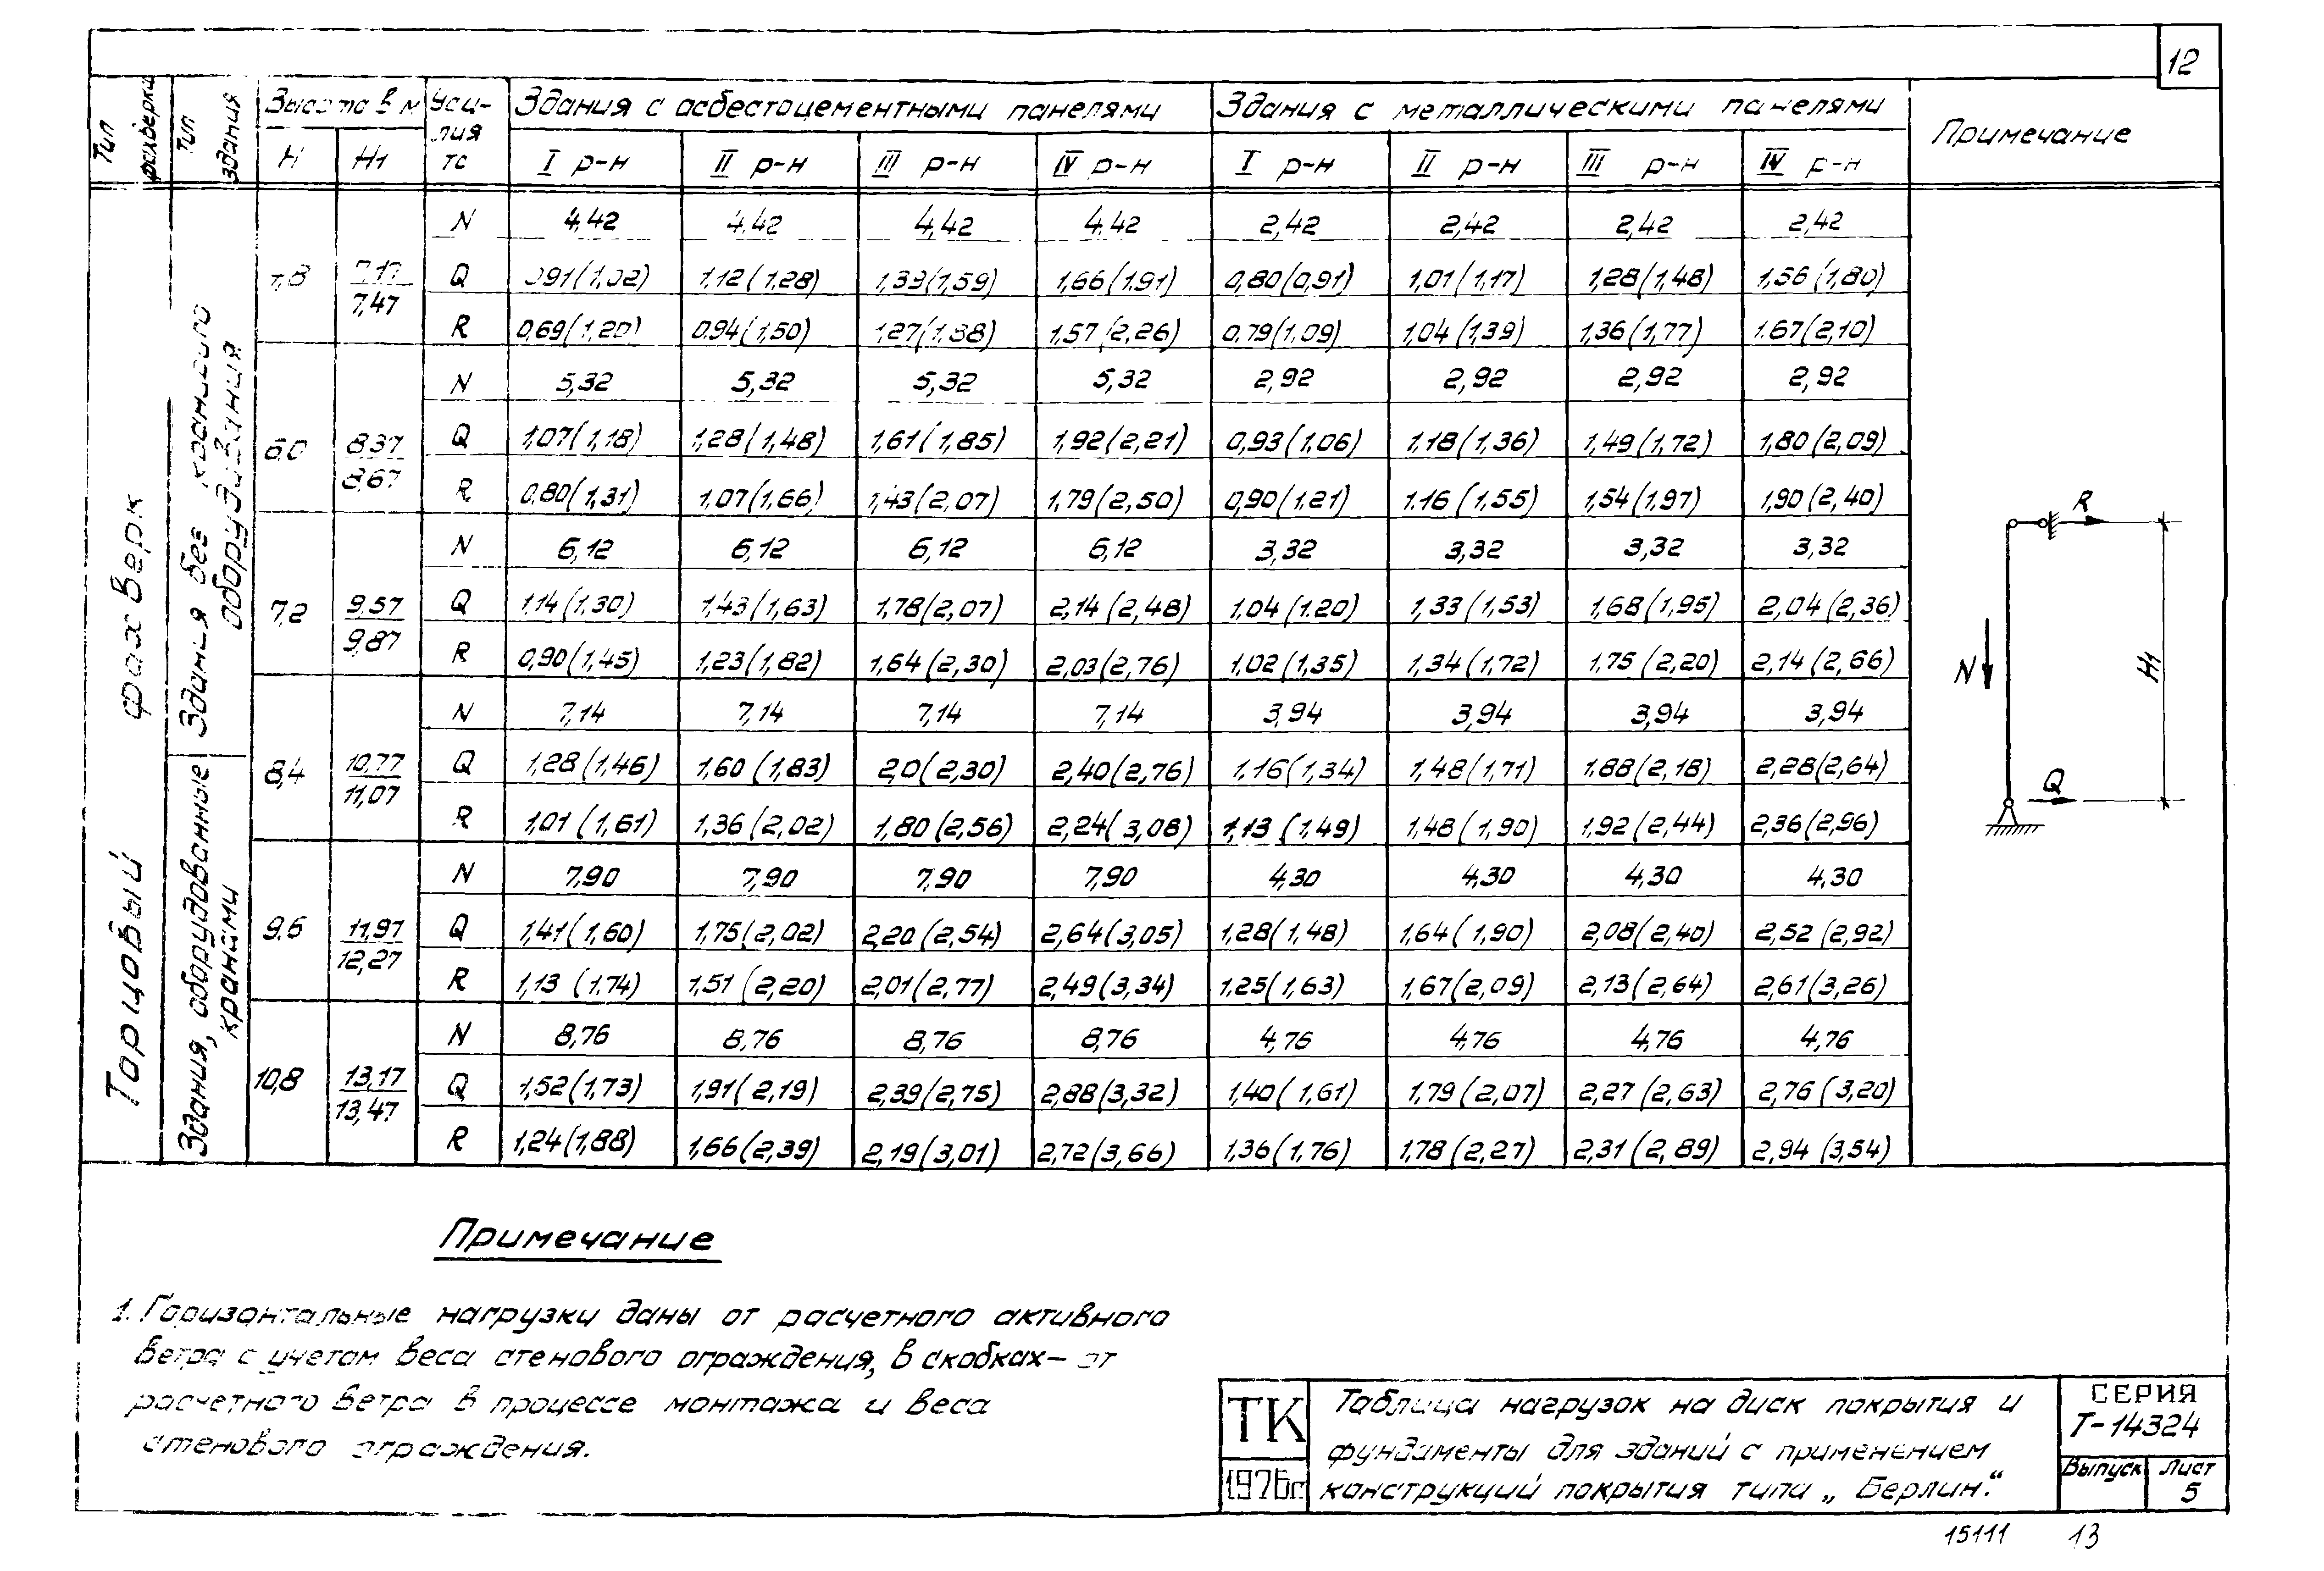 12
Тип фахверка | Тип здания | Высота в м | Уси-лия тс | Здания с асбестоцементными панелями | Здания с металлическими панелями | Примечание
H | H1 | I р-н | II р-н | III р-н | IV р-н | I р-н | II р-н | III р-н | IV р-н
Торцовый фахверк
Здания без кранового оборудования
Здания, оборудованные кранами
N | 4,42 | 4,42 | 4,42 | 4,42 | 2,42 | 2,42 | 2,42 | 2,42
7,47 | Q | 0,91(1,02) | 1,12(1,28) | 1,39(1,59) | 1,66(1,91) | 0,80(0,91) | 1,01(1,17) | 1,28(1,48) | 1,56(1,80)
R | 0,69(1,20) | 0,94(1,50) | 1,27(1,88) | 1,57(2,26) | 0,79(1,09) | 1,04(1,39) | 1,36(1,77) | 1,67(2,10)
N | 5,32 | 5,32 | 5,32 | 5,32 | 2,92 | 2,92 | 2,92 | 2,92
6,0 | 8,37 / 8,67 | Q | 1,07(1,18) | 1,28(1,48) | 1,61(1,85) | 1,92(2,21) | 0,93(1,06) | 1,18(1,36) | 1,49(1,72) | 1,80(2,09)
R | 0,80(1,31) | 1,07(1,66) | 1,43(2,07) | 1,79(2,50) | 0,90(1,21) | 1,16(1,55) | 1,54(1,97) | 1,90(2,40)
N | 6,12 | 6,12 | 6,12 | 6,12 | 3,32 | 3,32 | 3,32 | 3,32
7,2 | 9,57 / 9,87 | Q | 1,14(1,30) | 1,43(1,63) | 1,78(2,07) | 2,14(2,48) | 1,04(1,20) | 1,33(1,53) | 1,68(1,95) | 2,04(2,36)
R | 0,90(1,45) | 1,23(1,82) | 1,64(2,30) | 2,03(2,76) | 1,02(1,35) | 1,34(1,72) | 1,75(2,20) | 2,14(2,66)
N | 7,14 | 7,14 | 7,14 | 7,14 | 3,94 | 3,94 | 3,94 | 3,94
8,4 | 10,77 / 11,07 | Q | 1,28(1,46) | 1,60(1,83) | 2,0(2,30) | 2,40(2,76) | 1,16(1,34) | 1,48(1,71) | 1,88(2,18) | 2,28(2,64)
R | 1,01(1,61) | 1,36(2,02) | 1,80(2,56) | 2,24(3,08) | 1,13(1,49) | 1,48(1,90) | 1,92(2,44) | 2,36(2,96)
N | 7,90 | 7,90 | 7,90 | 7,90 | 4,30 | 4,30 | 4,30 | 4,30
9,6 | 11,97 / 12,27 | Q | 1,41(1,60) | 1,75(2,02) | 2,20(2,54) | 2,64(3,05) | 1,28(1,48) | 1,64(1,90) | 2,08(2,40) | 2,52(2,92)
R | 1,13(1,74) | 1,51(2,20) | 2,01(2,77) | 2,49(3,34) | 1,25(1,63) | 1,67(2,09) | 2,13(2,64) | 2,61(3,26)
N | 8,76 | 8,76 | 8,76 | 8,76 | 4,76 | 4,76 | 4,76 | 4,76
10,8 | 13,17 / 13,47 | Q | 1,52(1,73) | 1,91(2,19) | 2,39(2,75) | 2,88(3,32) | 1,40(1,61) | 1,79(2,07) | 2,27(2,63) | 2,76(3,20)
R | 1,24(1,88) | 1,66(2,39) | 2,19(3,01) | 2,72(3,66) | 1,36(1,76) | 1,78(2,27) | 2,31(2,89) | 2,94(3,54)
R
N
H1
Q
Примечание
1. Горизонтальные нагрузки даны от расчетного активного
ветра с учетом веса стенового ограждения, в скобках – от
расчетного ветра в процессе монтажа и веса
стенового ограждения.
ТК
1976г
Таблица нагрузок на диск покрытия и
фундаменты для зданий с применением
конструкций покрытия типа „Берлин“.
СЕРИЯ
Т-14324
Выпуск
Лист
5
15111 13